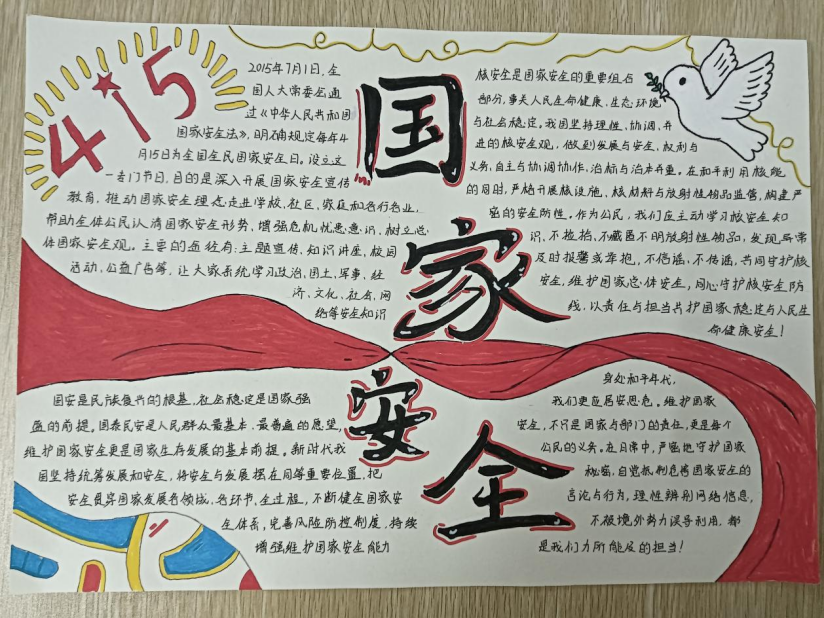 4·15
2015年7月1日,全
国人大常委会通
过《中华人民共和国
国家安全法》,明确规定每年4
月15日为全国全民国家安全日。设立这
一专门节日,目的是深入开展国家安全宣传
教育,推动国家安全理念走进学校、社区、家庭和各行各业,
帮助全体公民认清国家安全形势,增强危机忧患意识,树立总
体国家安全观。主要的途径有:主题宣传、知识讲座、校园
活动、公益广告等,让大家系统学习政治、国土、军事、经
济、文化、社会、网
络等安全知识
国家安全
核安全是国家安全的重要组名
部分,事关人民生命健康、生态环境
与社会稳定。我国坚持理性、协调、并
进的核安全观,做到发展与安全、权利与
义务、自主与协调协作、治标与治本并重。在和平利用核能
的同时,严格开展核设施、核材料与放射性物品监管,构建严
密的安全防性。作为公民,我们应主动学习核安全知
识,不捡拾、不藏匿不明放射性物品,发现异常
及时报警或举抱,不信谣、不传谣,共同守护核
安全,维护国家总体安全,同心守护核安全防
线,以责任与担当共护国家稳定与人民生
命健康安全!
国安是民族复兴的根基,社会稳定是国家强
盛的前提。国泰民安是人民群众最基本、最普遍的愿望,
维护国家安全更是国家生存发展的基本前提。新时代我
国坚持统筹发展和安全,将安全与发展摆在同等重要位置,把
安全贯穿国家发展各领域、各环节、全过程,不断健全国家安
全体系,完善风险防控制度,持续
增强维护国家安全能力
身处和平年代,
我们更应居安思危。维护国家
安全,不只是国家与部门的责任,更是每个
公民的义务。在日常中,严密地守护国家
秘密,自觉抵制危害国家安全的
言论与行为,理性辨别网络信息,
不被境外势力误导利用,都
是我们力所能及的担当!